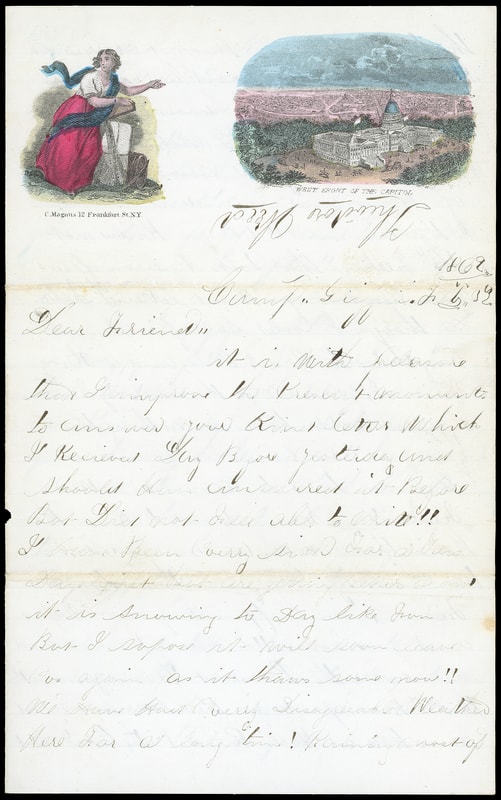 WEST FRONT OF THE CAPITOL
C. Magnus 12 Frankfort St. N.Y.
1862
Camp
Dear Friend
it is with pleasure
that I improve the Present moment
to answer your Kind letter Which
I Recieved Day Before yesterday and
should have answered it Before
But Did not feel able to write!!
I have Been very sick for a few
Days
it is snowing to Day like
But I supose it will soon leave
us again as it thaws some now!!
We Have Had very Disagreeable Weather
Here For a long time! Raining most of